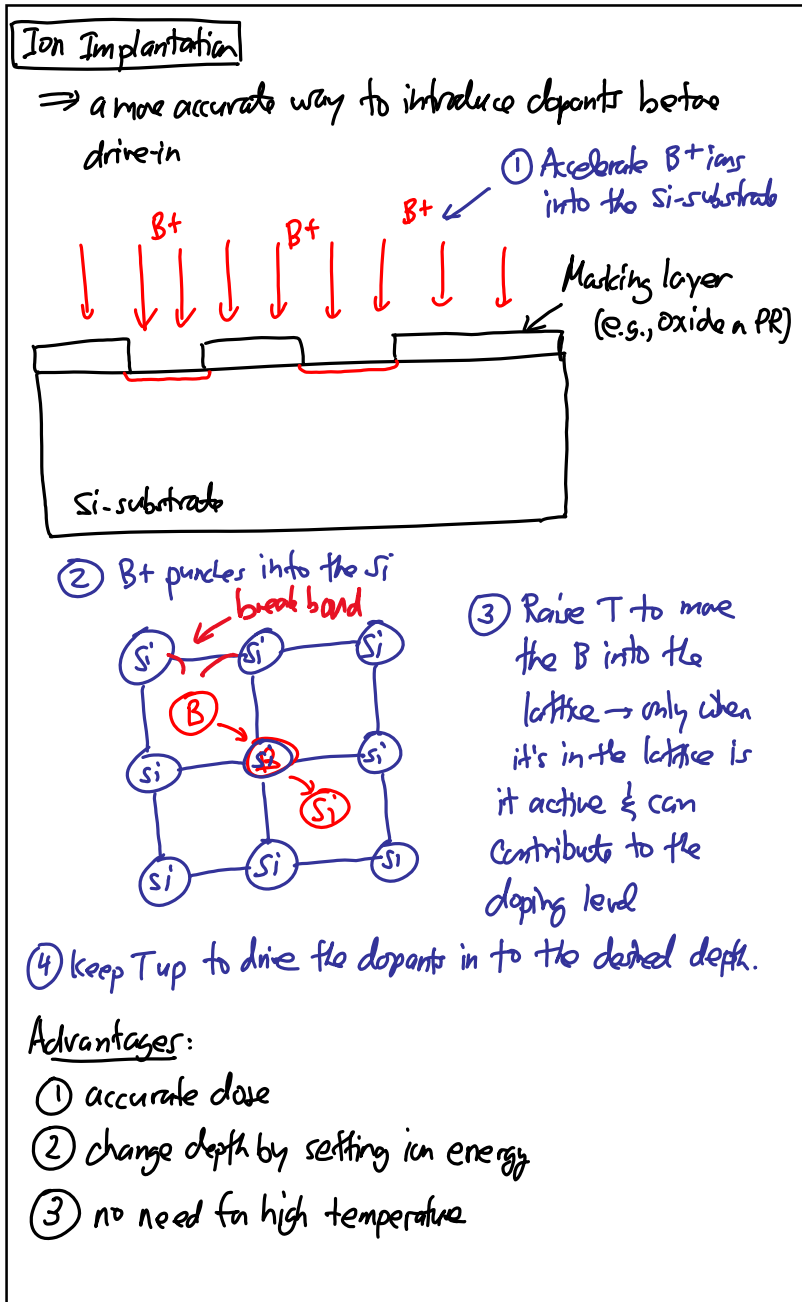 Ion Implantation
⇒ a more accurate way to introduce dopants before
drive-in
① Accelerate B+ ions
into the Si-substrate
B+
B+
B+
Masking layer
(e.g., oxide or PR)
Si-substrate
② B+ punches into the Si
break bond
Si
Si
Si
B
Si
Si
B
Si
Si
Si
Si
Si
③ Raise T to move
the B into the
lattice → only when
it's in the lattice is
it active & can
contribute to the
doping level
④ Keep T up to drive the dopants in to the desired depth.
Advantages:
① accurate dose
② change depth by setting ion energy
③ no need for high temperature